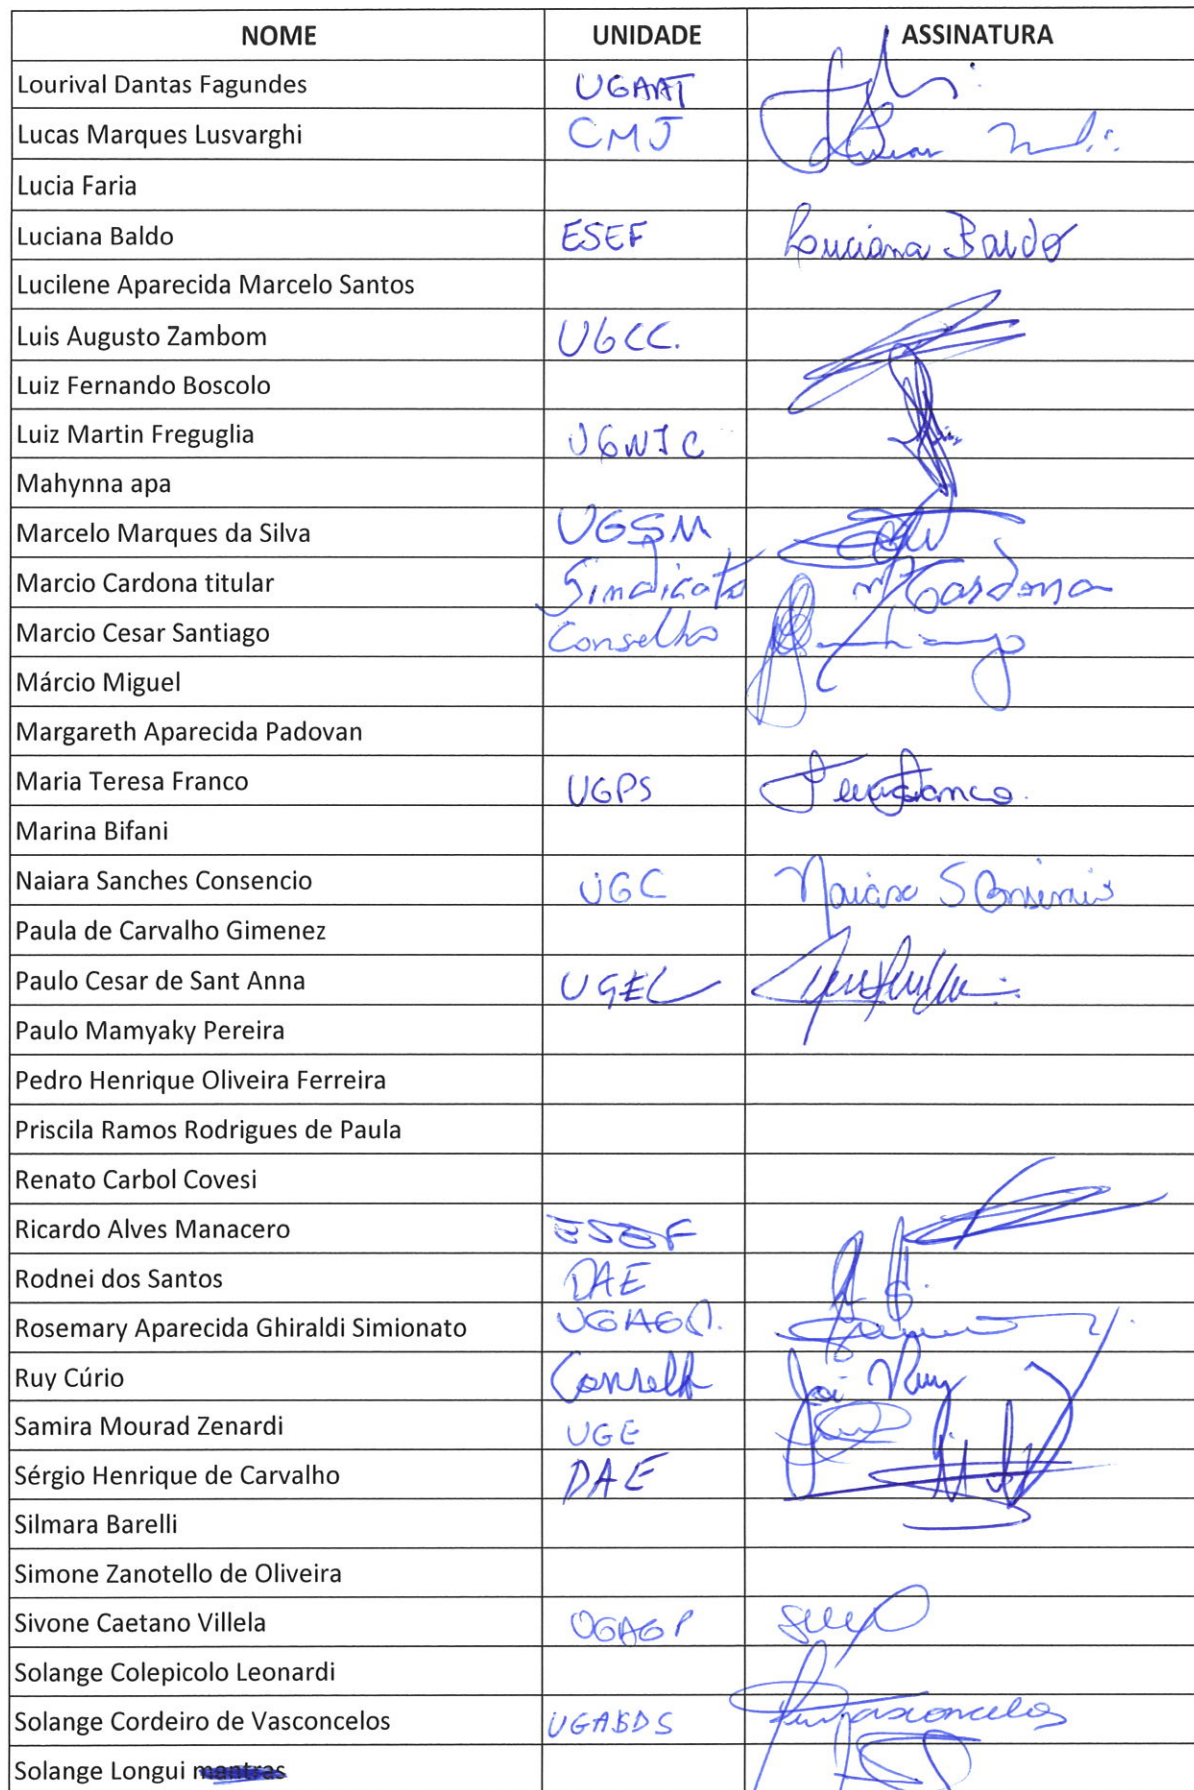 NOME UNIDADE ASSINATURA
Lourival Dantas Fagundes UGAAT
Lucas Marques Lusvarghi CMJ
Lucia Faria
Luciana Baldo ESEF Luciana Baldo
Lucilene Aparecida Marcelo Santos
Luis Augusto Zambom UGCC.
Luiz Fernando Boscolo
Luiz Martin Freguglia UGNIC
Mahynna apa
Marcelo Marques da Silva UGSM
Marcio Cardona titular Sindicato Cardona
Marcio Cesar Santiago Conselho
Márcio Miguel
Margareth Aparecida Padovan
Maria Teresa Franco UGPS
Marina Bifani
Naiara Sanches Consencio UGC Naiara S
Paula de Carvalho Gimenez
Paulo Cesar de Sant Anna UGEL
Paulo Mamyaky Pereira
Pedro Henrique Oliveira Ferreira
Priscila Ramos Rodrigues de Paula
Renato Carbol Covesi
Ricardo Alves Manacero ESEF
Rodnei dos Santos DAE
Rosemary Aparecida Ghiraldi Simionato
Ruy Cúrio Ruy
Samira Mourad Zenardi UGE
Sérgio Henrique de Carvalho DAE
Silmara Barelli
Simone Zanotello de Oliveira
Sivone Caetano Villela UGAGP
Solange Colepicolo Leonardi
Solange Cordeiro de Vasconcelos UGADS Vasconcelos
Solange Longui